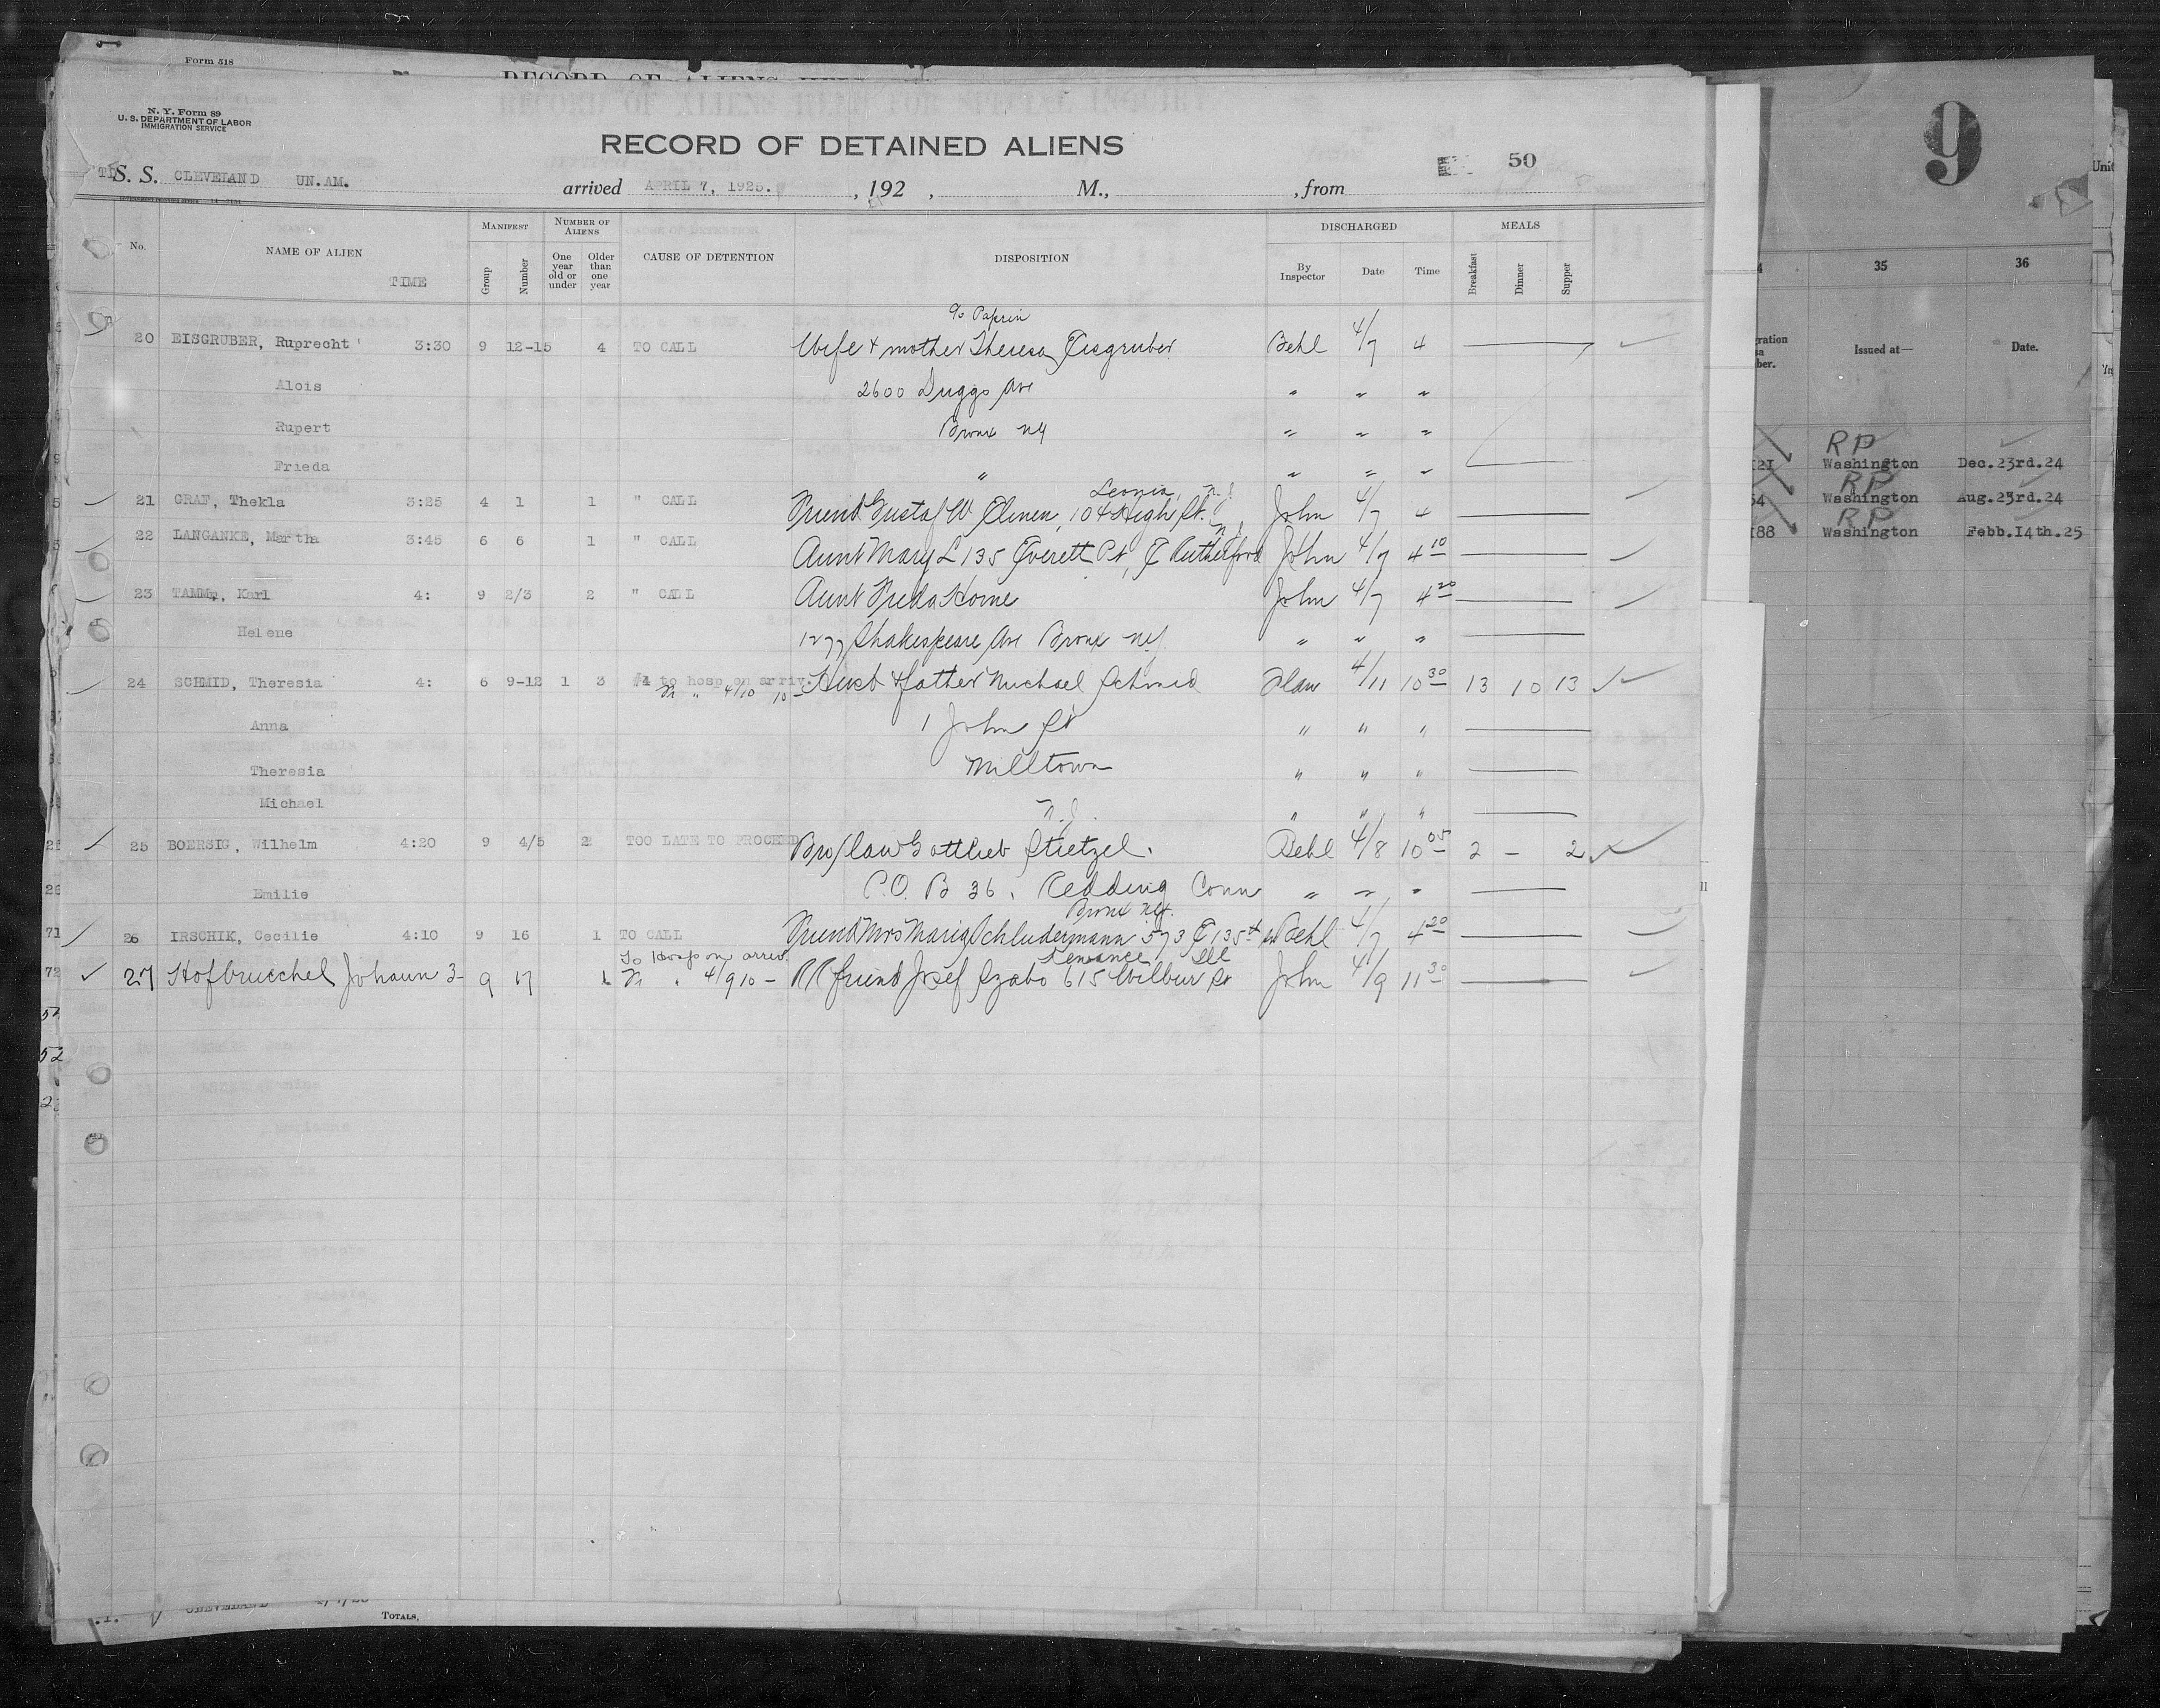 Form 518
N. Y. Form 89
U. S. DEPARTMENT OF LABOR
IMMIGRATION SERVICE
RECORD OF DETAINED ALIENS
50
9
S. S. CLEVELAND UN.AM. arrived APRIL 7, 1925. , 192 , M., , from
Unit
No. NAME OF ALIEN TIME MANIFEST Group Number NUMBER OF ALIENS One year old or under Older than one year CAUSE OF DETENTION DISPOSITION DISCHARGED By Inspector Date Time MEALS Breakfast Dinner Supper
35 36
Issued at— Date.
c/o Paprin
20 EISGRUBER, Ruprecht 3:30 9 12-15 4 TO CALL Wife + mother Theresa Eisgruber Behl 4/7 4
Alois 2600 Briggs Ave " " "
Rupert Bronx NY " " "
Frieda " " " "
RP
Washington Dec.23rd.24
RP
Washington Aug.23rd.24
RP
188 Washington Febb.14th.25
Leonia, N.J
21 GRAF, Thekla 3:25 4 1 1 " CALL Friend Gustaf W 104 High St. John 4/7 4
N J
22 LANGANKE, Martha 3:45 6 6 1 " CALL Aunt Mary L 135 Everett Pl, E Rutherford John 4/7 4 10
23 TAMMp, Karl 4: 9 2/3 2 " CALL Aunt Freda Horne John 4/7 4 20
Helene 1277 Shakespeare Ave Bronx NY " " "
24 SCHMID, Theresia 4: 6 9-12 1 3 #4 to hosp on arriv. Husb + father Michael Schmid 4/11 10 30 13 10 13
" 4/10 10-
Anna 1 John St " " "
Theresia Milltown " " "
Michael N.J. " " "
25 BOERSIG, Wilhelm 4:20 9 4/5 2 TOO LATE TO PROCEED Bro/law Gottlieb Stietzel. Behl 4/8 10 05 2 - 2
Emilie P.O. B 36, Redding Conn " " "
Bronx NY.
26 IRSCHIK, Cecilie 4:10 9 16 1 TO CALL Friend Mrs Maria Schludermann 573 E 135 St Behl 4/7 4 20
To Hosp on arriv. Kewanee Ill
27 Hofbrueckel Johann 3- 9 17 1 " 4/9 10- RR friend Josef Szabo 615 Wilbur St John 4/9 11 30
52
CLEVELAND 4/7/25
TOTALS,